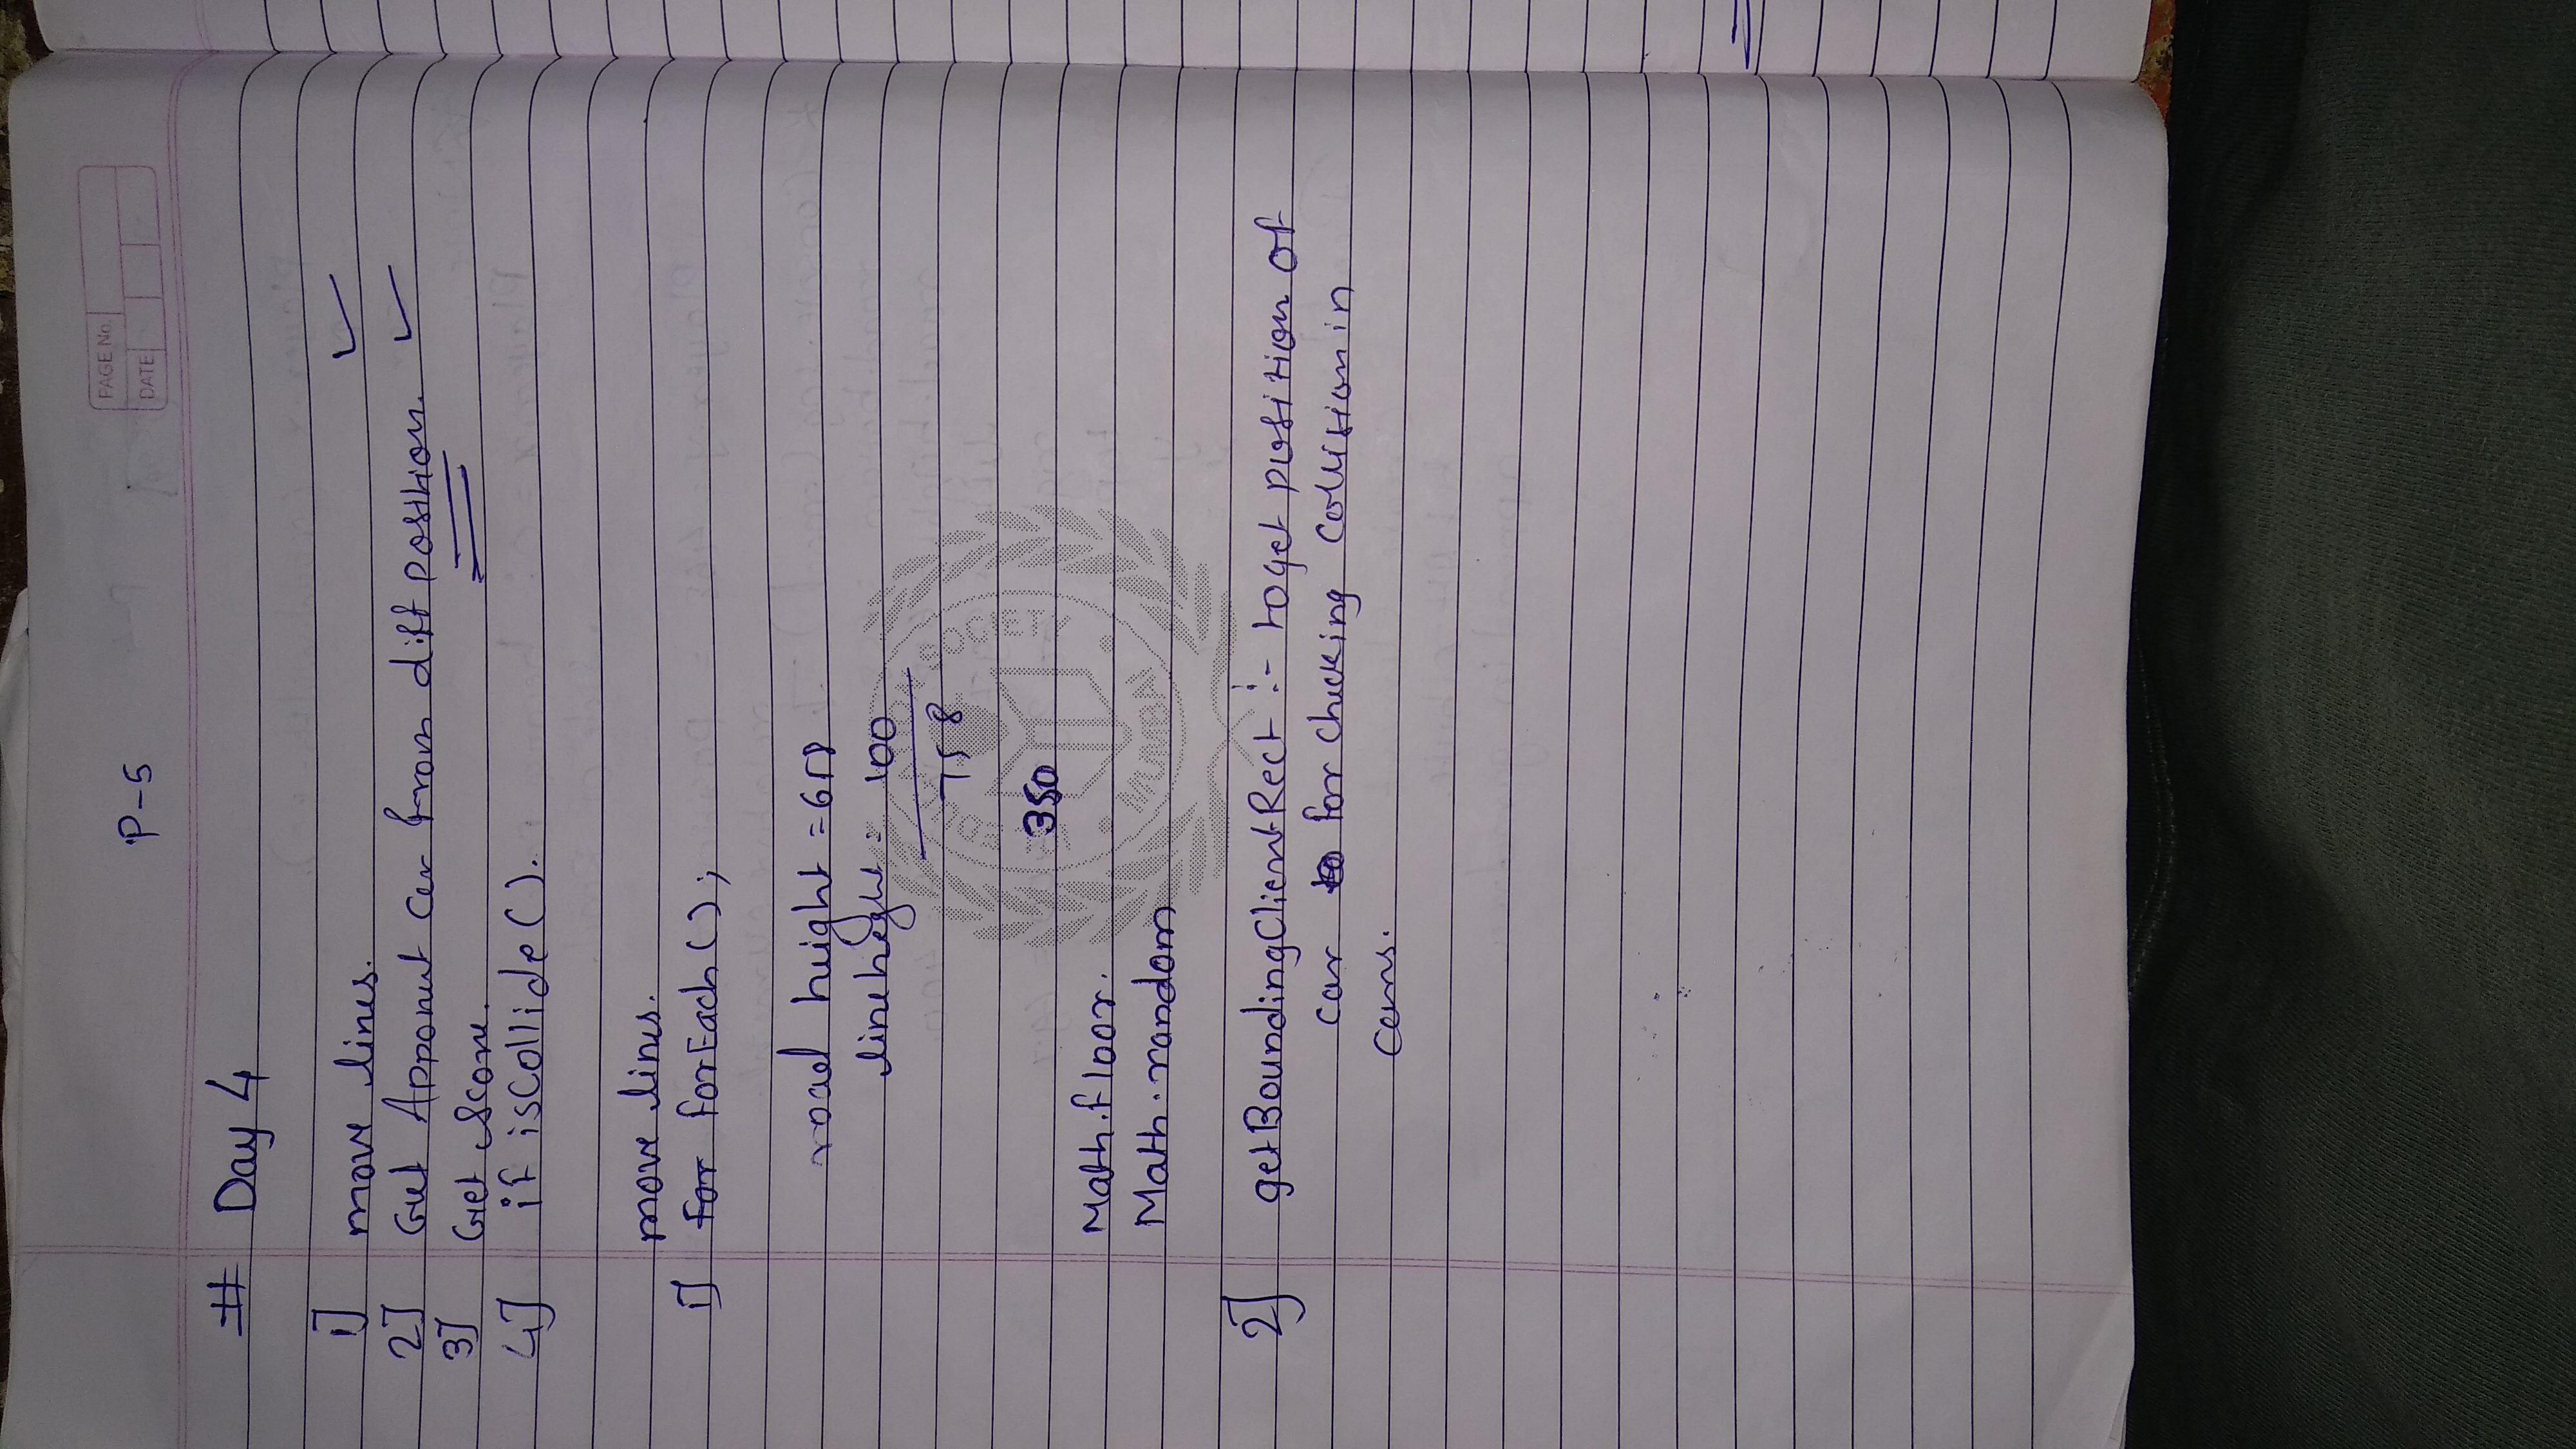 P-5
PAGE No.
DATE
# Day 4
1] move lines. ✓
2] Get Apponent Car from diff position. ✓
3] Get Score.
4] if isCollide().
move lines.
1] for forEach();
road height = 658
line height = 100
758
350
Math.floor.
Math.random
2] getBoundingClientRect :- to get position of
car to for checking collision in
cars.
SOCIETY
MUMBAI